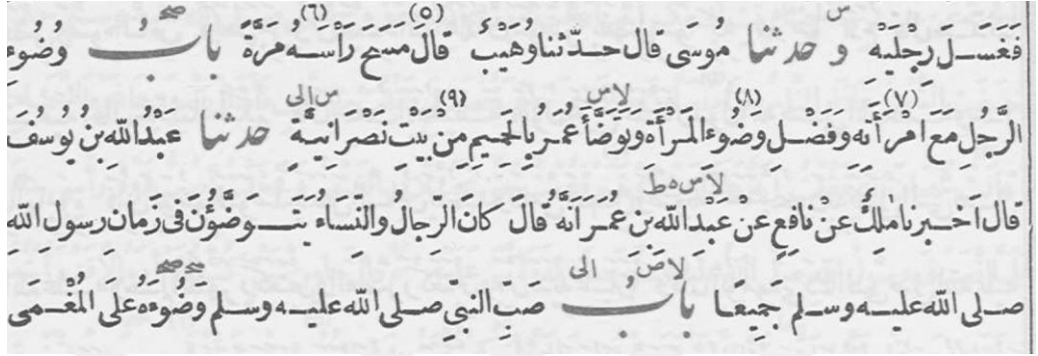 فَغَسَلَ رِجْلَيْهِ و حدثنا مُوسَى قال حدّثنا وُهَيْبٌ (٥) قالَ مَسَحَ رَأْسَهُ (٦) مَرَّةً باب وُضُوءِ
الرَّجُلِ مَعَ امْرَأَتِهِ (٧) وفَضْلِ وضُوءِ المَرْأَةِ (٨) وتَوَضَّأَ عُمَرُ بِالحَمِيمِ مِنْ (٩) بَيْتِ نَصْرَانِيَّةٍ حدثنا عَبْدُ اللّهِ بنُ يُوسُفَ
قال أخْبرنا مٰلِكٌ عنْ نافِعٍ عنْ عَبْدِ اللّهِ بن عُمَرَ أنَّهُ قالَ كانَ الرِّجالُ والنِّساءُ يَتَوضَّؤُنَ فى زَمانِ رسولِ اللّهِ
صلى اللّه عليه وسلم جَمِيعًا باب صبِ النبيّ صلى اللّه عليه وسلم وَضُوءَهُ على المُغْمَى